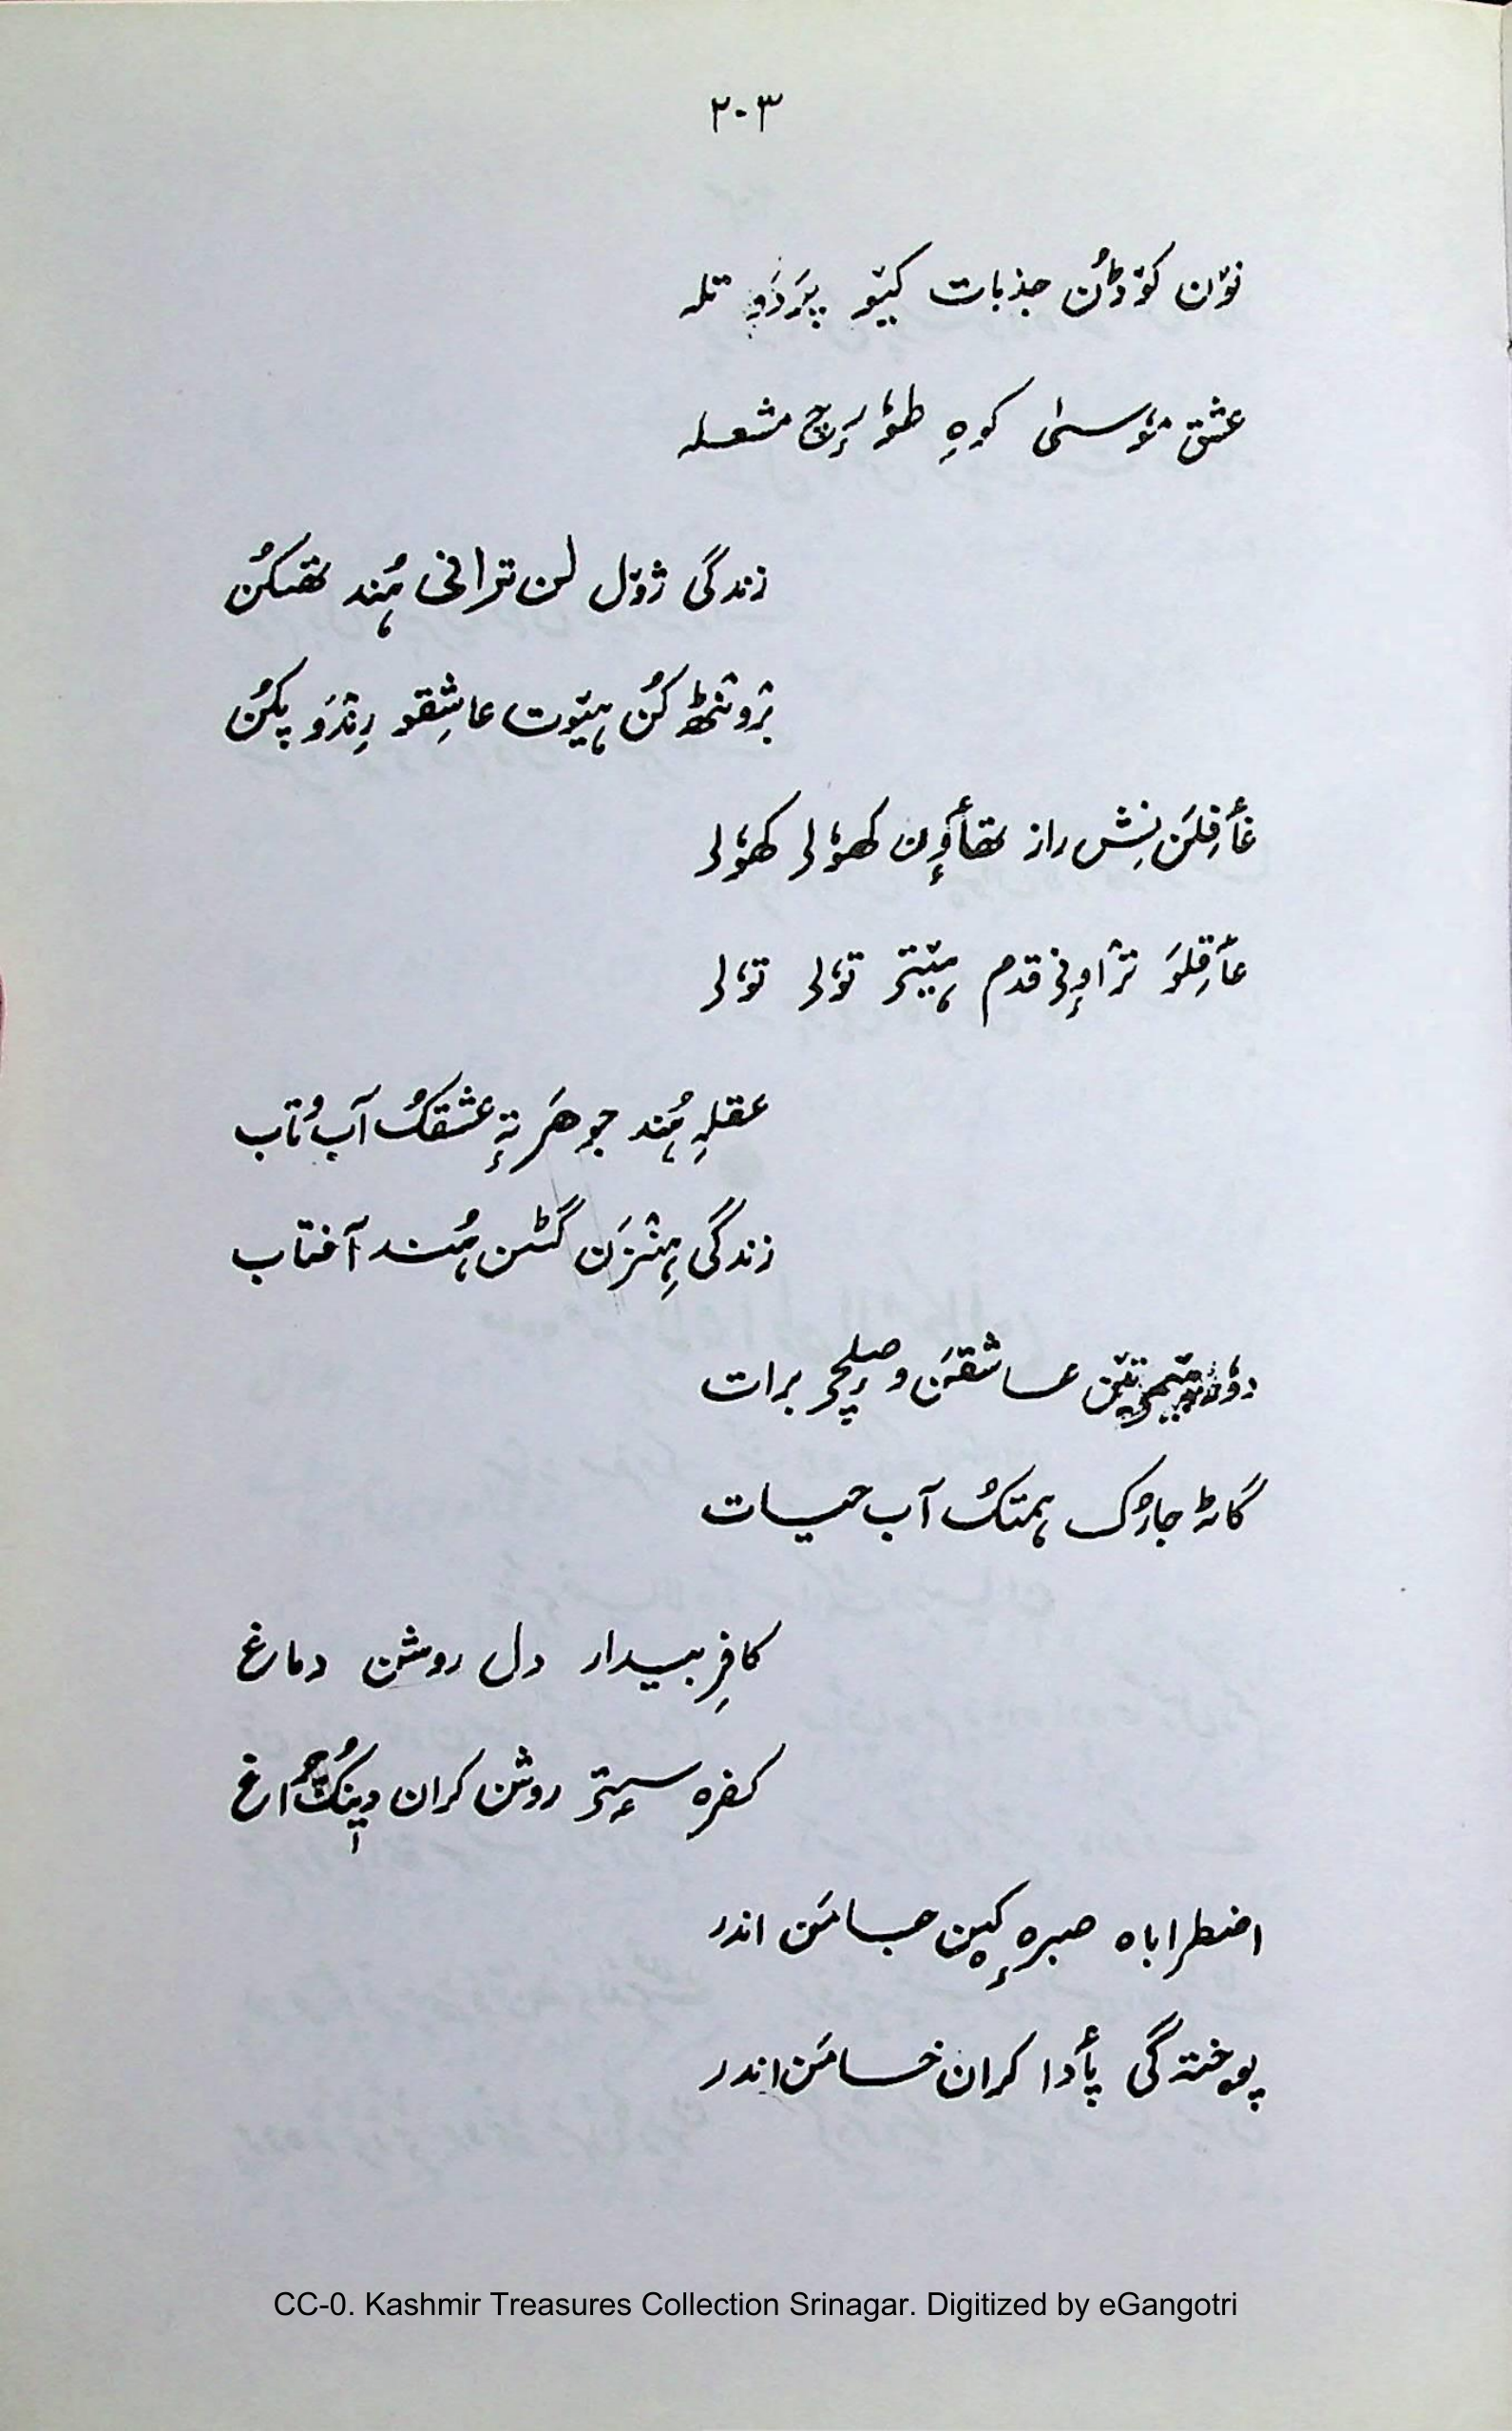 ۲۰۳
نوٚن کوٚڈُن جذبات کیٚو پَردَو تلہ
عشق موٗسیٰ کوہِ طوٗرٕچ مشعلہ
زندگی ژوٚل لن ترانی ہُند تھکُن
برٛونٹھ کُن ہیٚوت عاشِقو رِندَو پکُن
غٲفِلَن نِش راز تھٲوِن کھوٗلۍ کھوٗلۍ
عٲقِلَو ترٛاوٕنۍ قدم ہیٚتۍ توٗلۍ توٗلۍ
عقلہِ ہُند جوھَر تہٕ عشقُک آب و تاب
زندگی ہِنٛزَن گٹن ہُند آفتاب
عاشقَن وصلٕچۍ برات
گاٹہ جارُک ہمتُک آب حیات
کافرِ بیدار دل روشن دماغ
کفرہ سٟتۍ روشن کران دیٖنُک چراغ
اضطراباہ صبرہ کٮ۪ن جامَن اندر
پوختہ گی پٲدا کران خامَن اندر
CC-0. Kashmir Treasures Collection Srinagar. Digitized by eGangotri